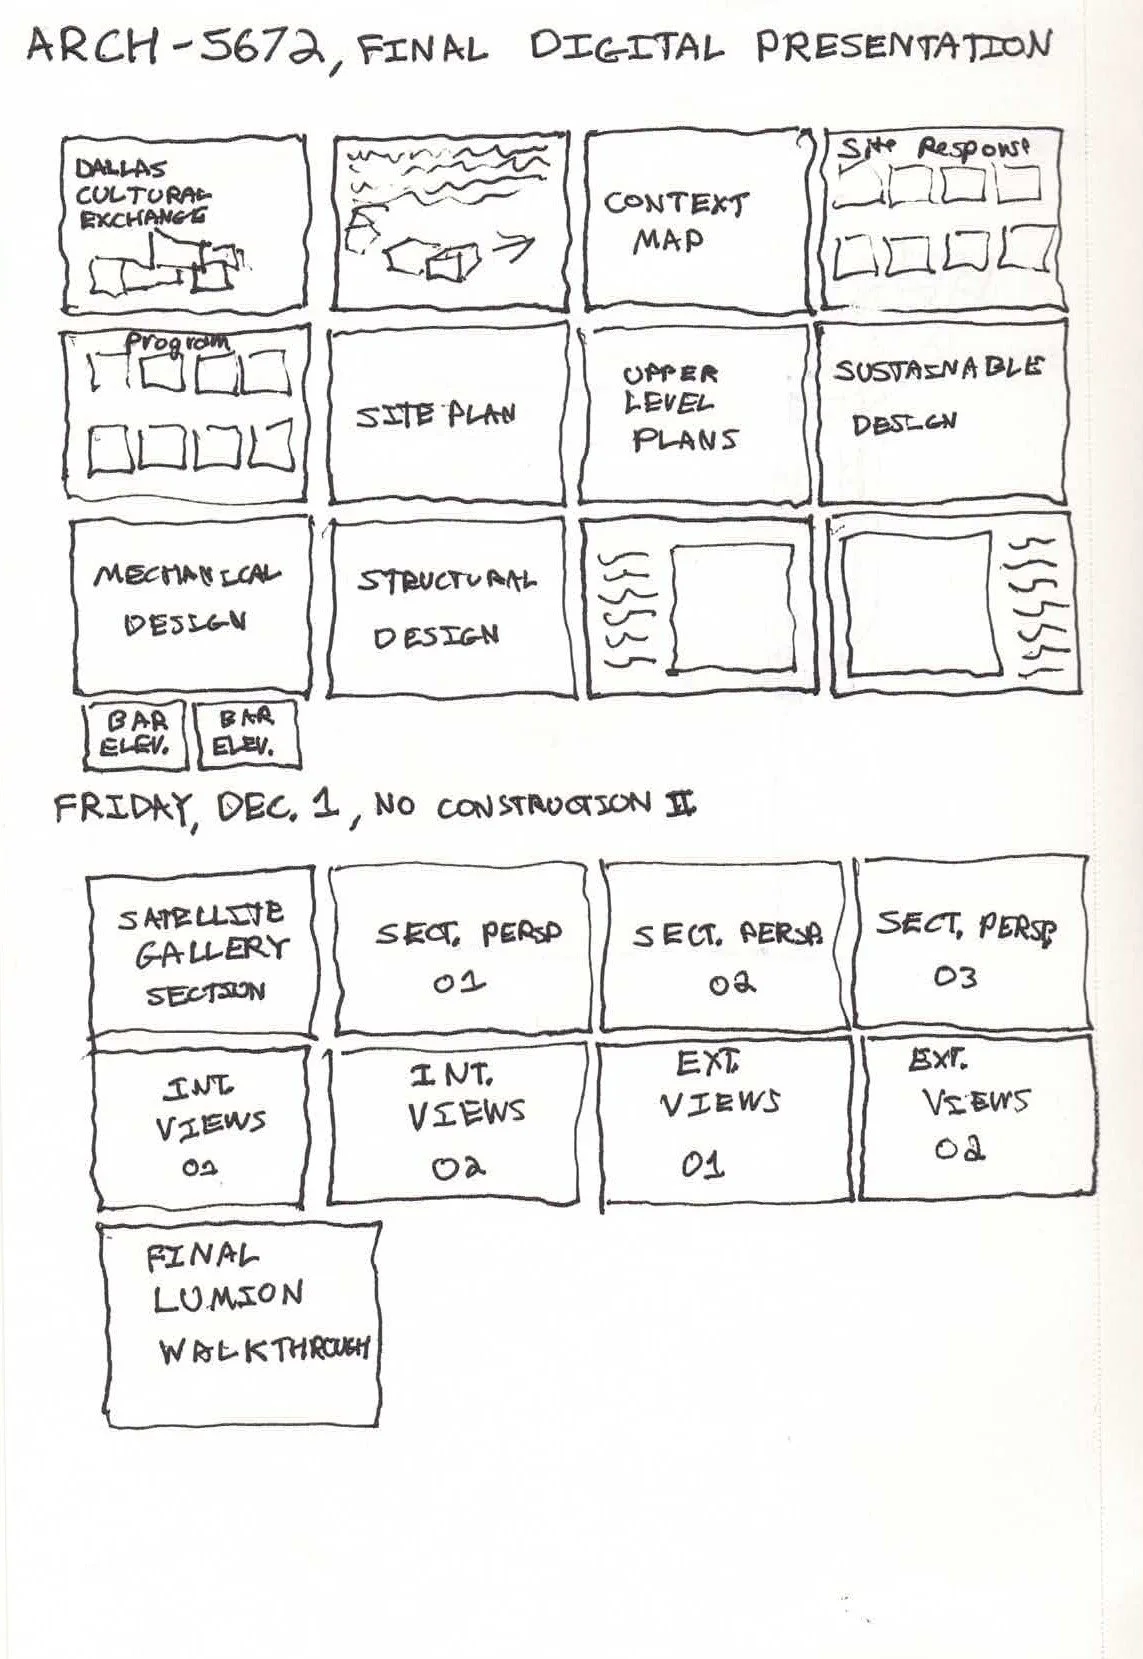 ARCH-5672, FINAL DIGITAL PRESENTATION
DALLAS
CULTURAL
EXCHANGE
CONTEXT
MAP
Site Response
Program
SITE PLAN
UPPER
LEVEL
PLANS
SUSTAINABLE
DESIGN
MECHANICAL
DESIGN
STRUCTURAL
DESIGN
BAR
ELEV.
BAR
ELEV.
FRIDAY, DEC. 1, NO CONSTRUCTION II
SATELLITE
GALLERY
SECTION
SECT. PERSP
01
SECT. PERSP.
02
SECT. PERSP.
03
INT.
VIEWS
01
INT.
VIEWS
02
EXT.
VIEWS
01
EXT.
VIEWS
02
FINAL
LUMION
WALKTHROUGH